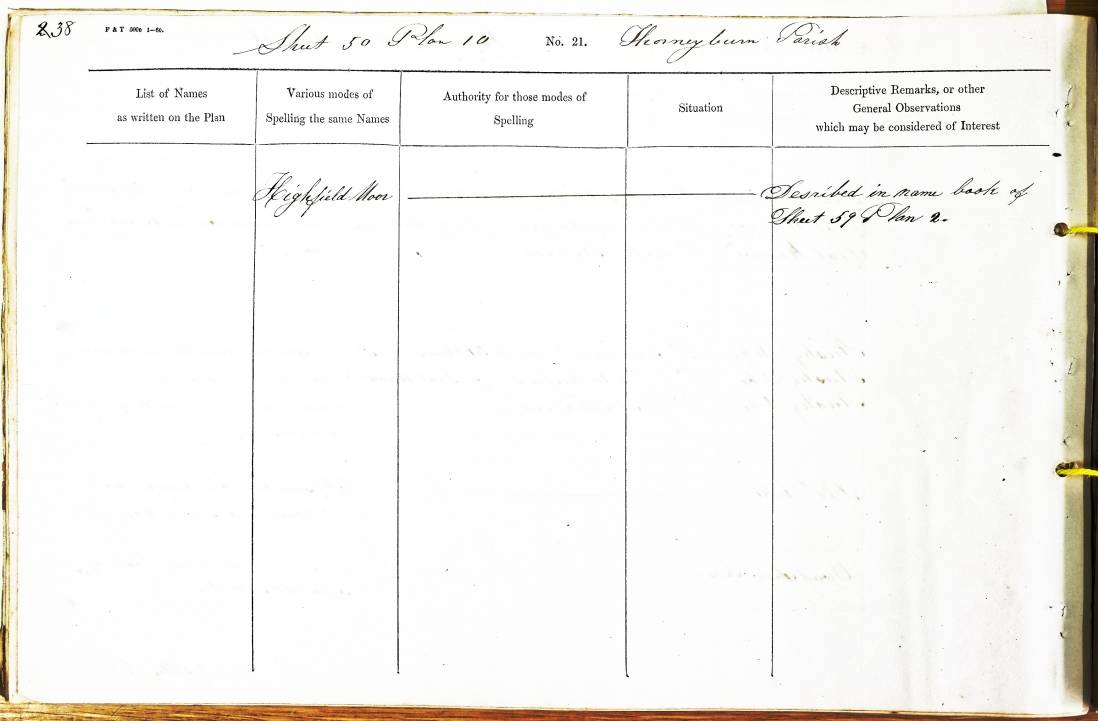 238 F & T 5000 1—60. Sheet 50 Plan 10 No. 21. Thorneyburn Parish
List of Names
as written on the Plan
Various modes of
Spelling the same Names
Authority for those modes of
Spelling
Situation
Descriptive Remarks, or other
General Observations
which may be considered of Interest
Highfield Moor
Desribed in name book of
Sheet 59 Plan 2.